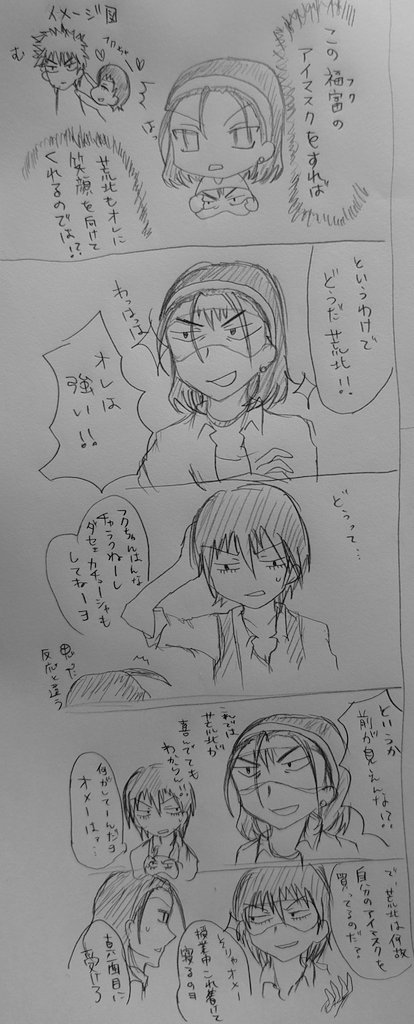 この福富の
フク
アイマスクをすれば
は、
イメージ図
む
荒北もオレに
笑顔を向けて
くれるのでは!?
というわけで
どうだ荒北!!
わっはっは
オレは
強い!!
どうって…
フクちゃんはんな
チャラくねーし
ダセェカチューシャも
してねーヨ
思った
反応と違う
というか
前が見えんな!?
これでは
荒北が
喜んでても
わからん!!
何がしてーんだヨ
オメーはァ…
で、荒北は何故
自分のアイマスクを
買ってるのだ?
そりゃオメー
授業中これ着けて
寝るのヨ
真面目に
受けろ